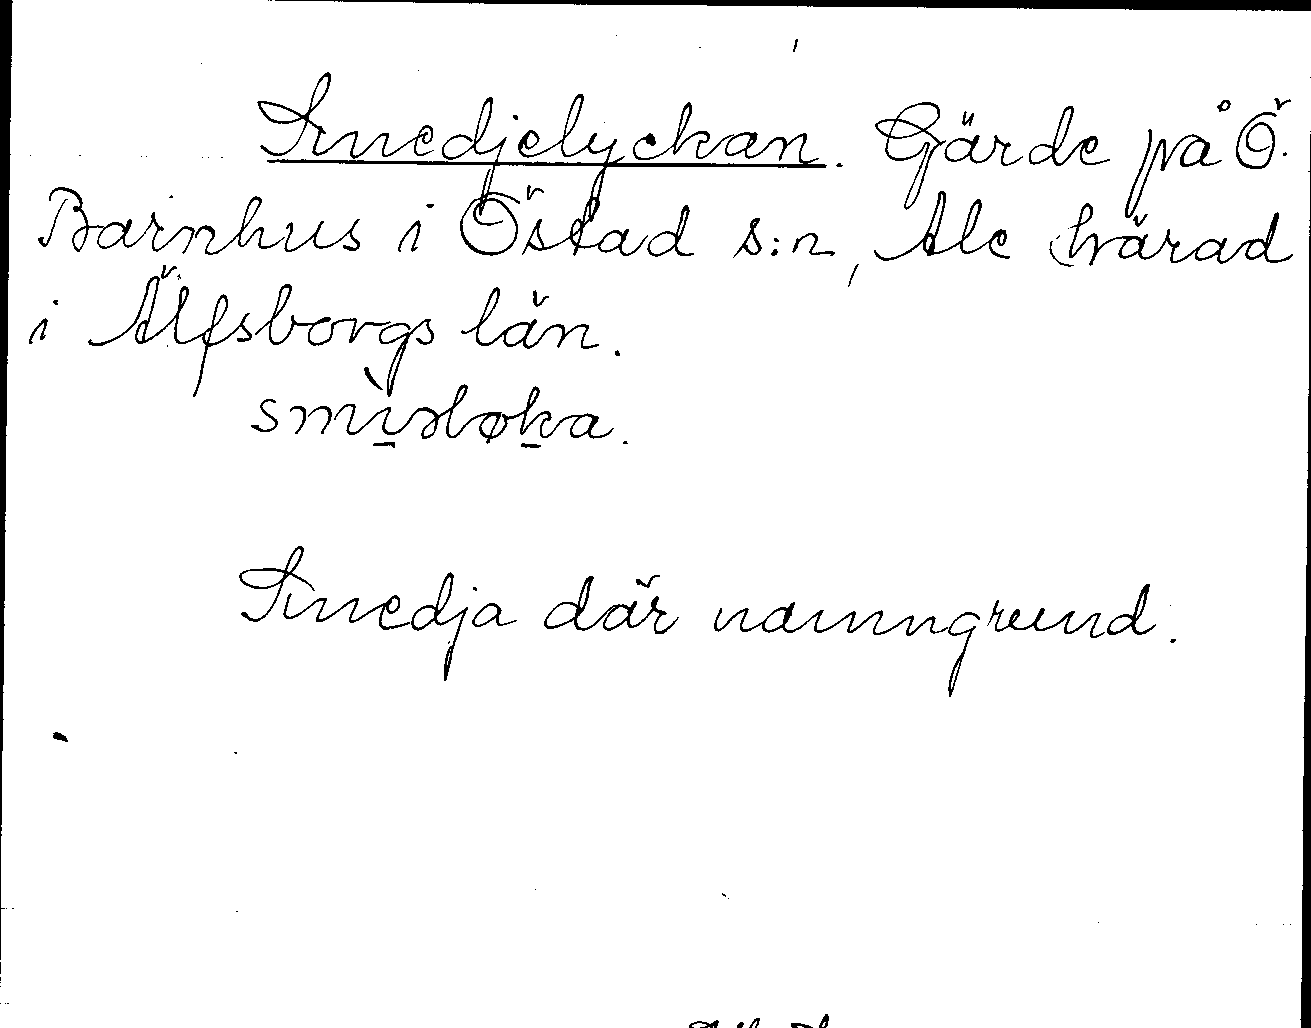 Smedjelyckan. Gärde på Ö.
Barnhus i Östad s:n, Ale härad
i Älfsborgs län.
smìsløka.
Smedja där namngrund.